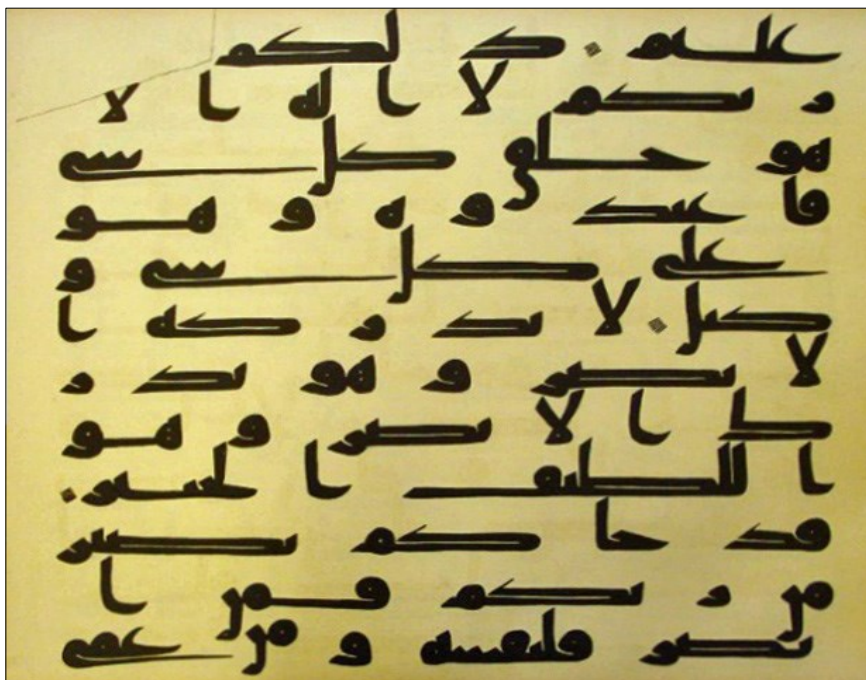 عليم ذلكم
ربكم لا اله الا
هو خلق كل شى
فاعبدوه وهو
على كل شى و
كيل لا تدركه ا
لابصر وهو يدر
ك الابصر وهو
اللطيف الخبير
قد جاكم بصير
من ربكم فمن ا
بصر فلنفسه ومن عمى